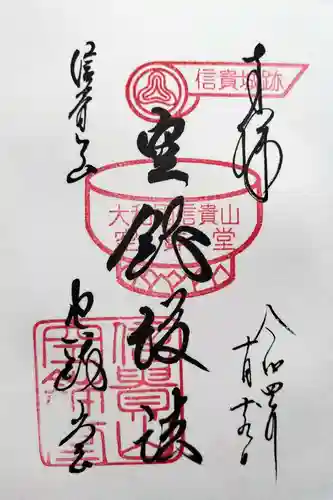 奉拝
令和四年
十月
信貴城跡
大和国信貴山
空鉢堂
空鉢護法
信貴山
空鉢堂
信貴山
空鉢堂